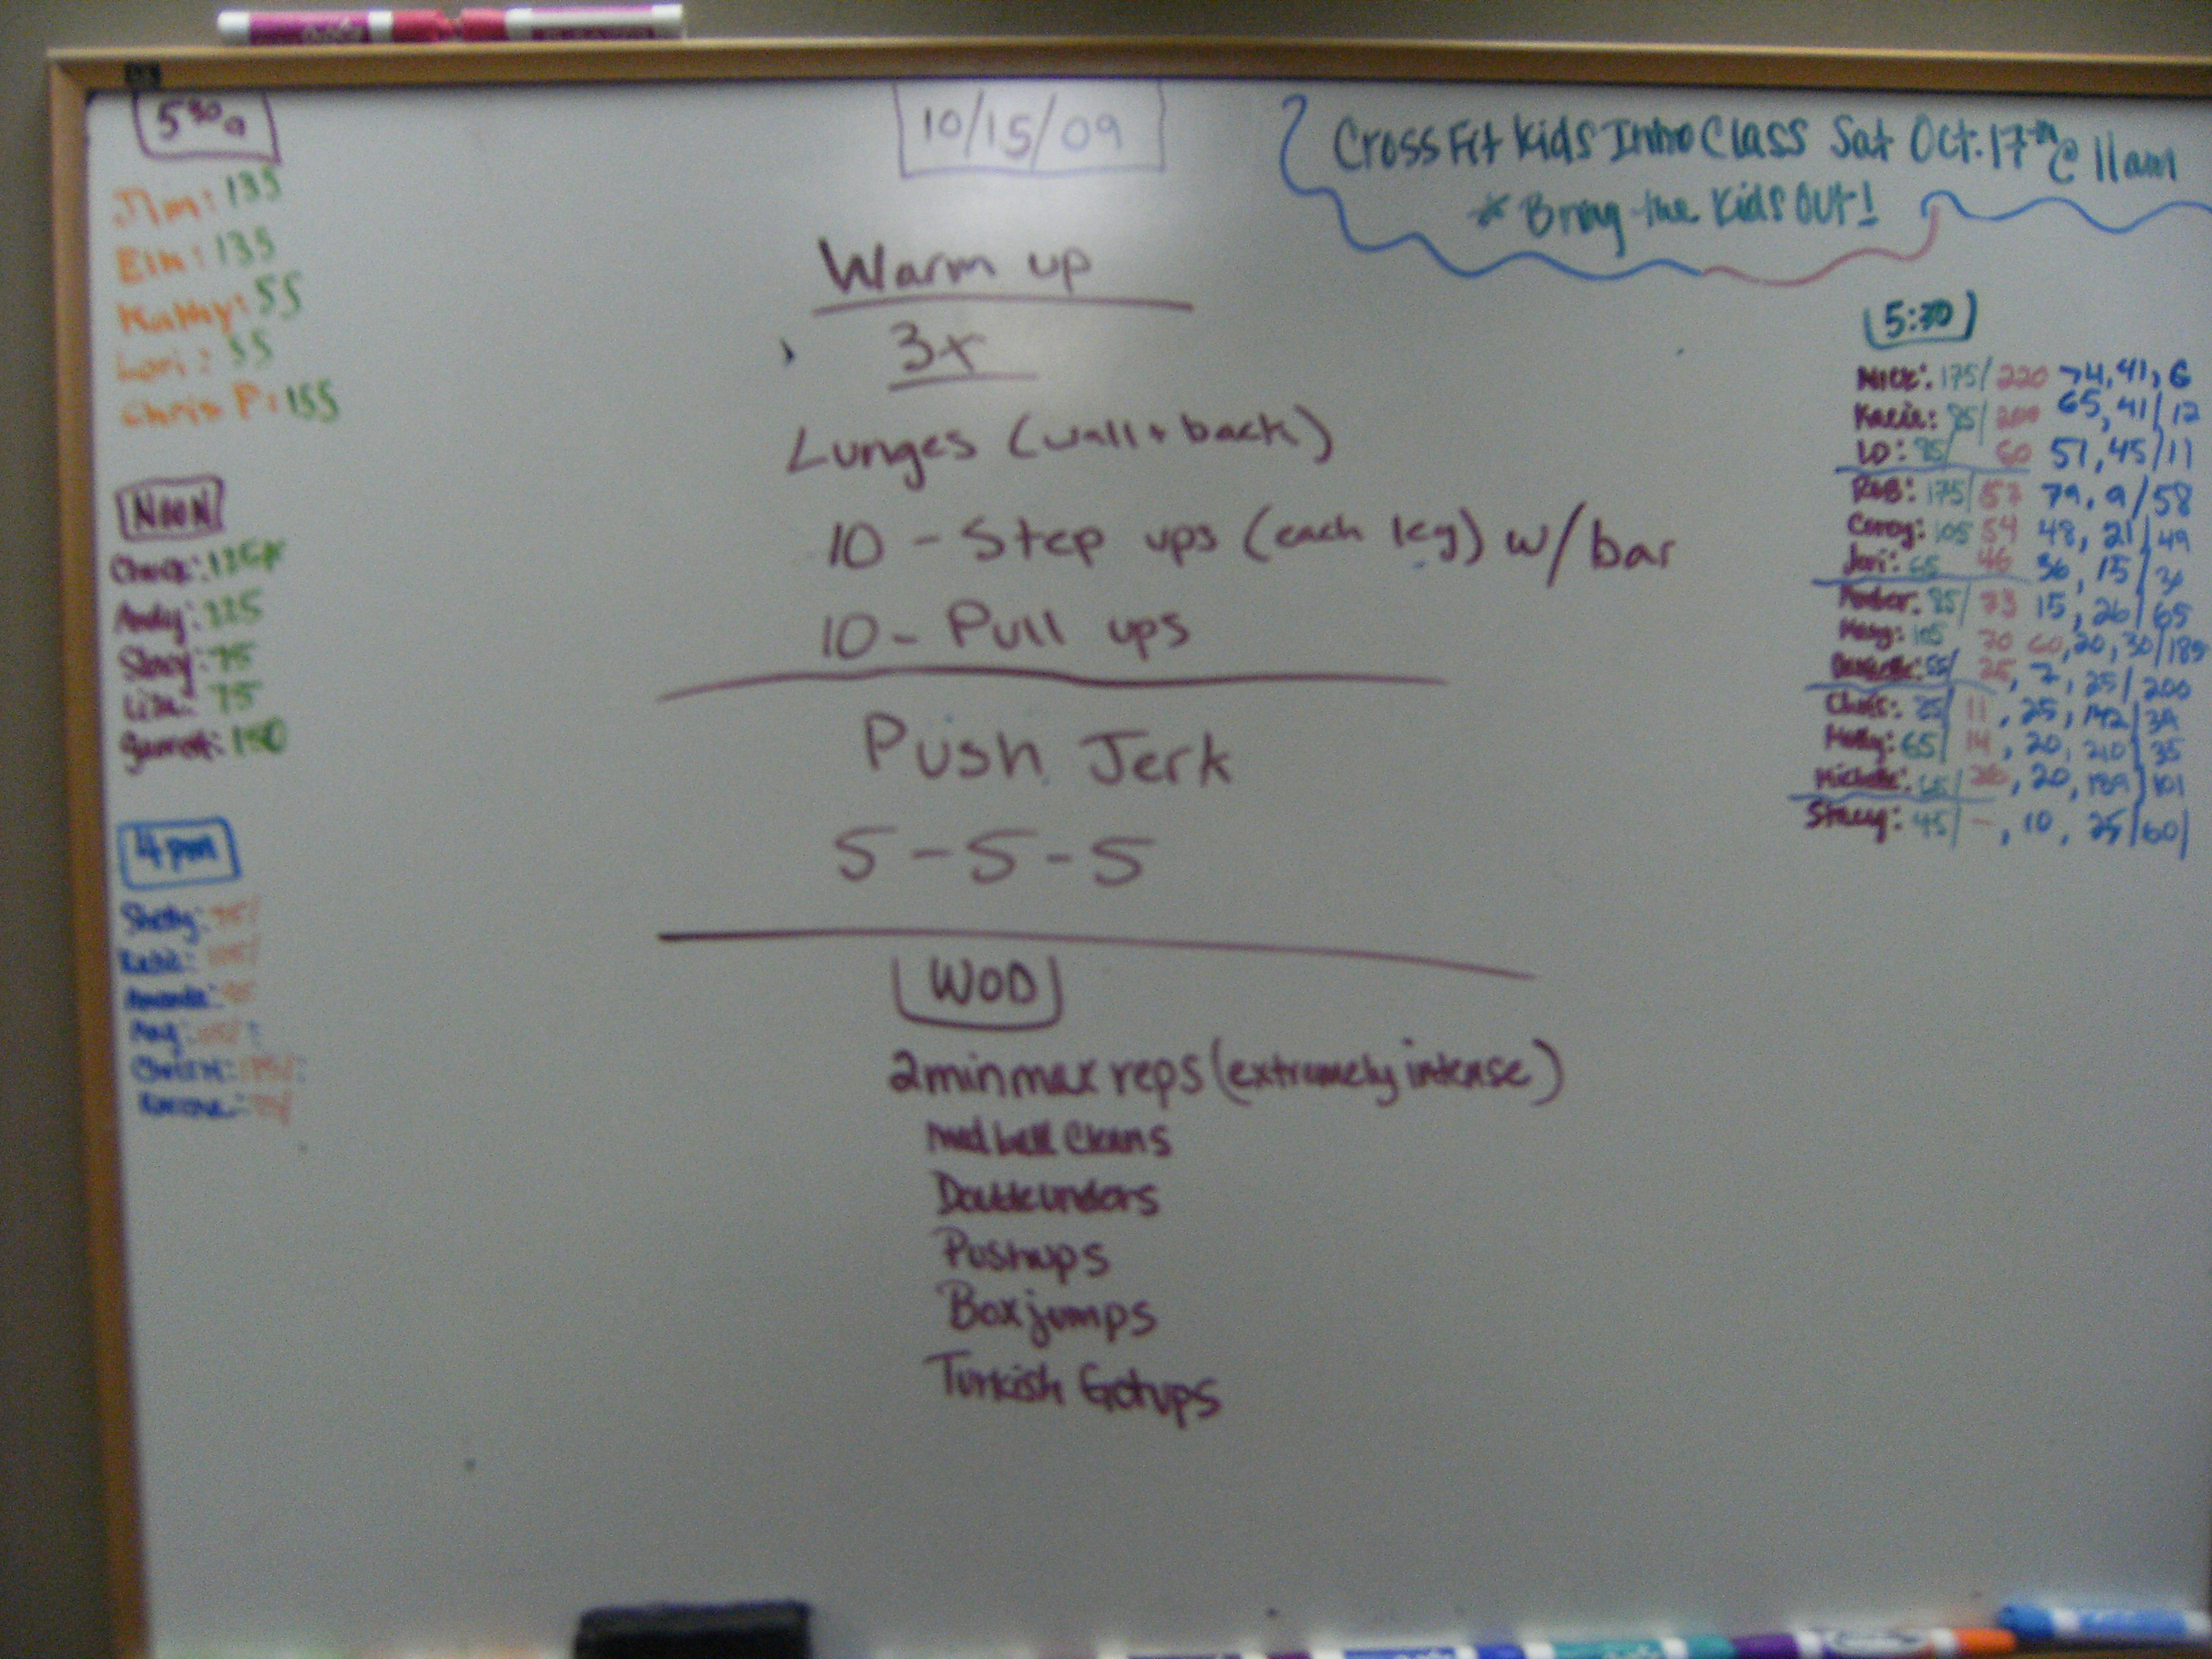 5³⁰a
Jim: 135
Eln: 135
Kathy: 55
Lori: 55
Chris P: 155
NOON
Chuck: 125
Andy: 225
Stacy: 75
Lisa: 75
Garrett: 150
4pm
Shelly:
Katie:
Amanda:
Amy:
10/15/09
Warm up
3x
Lunges (wall + back)
10 - Step ups (each leg) w/bar
10 - Pull ups
Push Jerk
5-5-5
WOD
2 min max reps (extremely intense)
med ball cleans
Double unders
Pushups
Box jumps
Turkish Getups
CrossFit Kids Intro Class Sat Oct. 17th @ 11am
* Bring the Kids OUT!
5:30
Nick: 175/220 74, 41, 6
Kacie: 85/200 65, 41/12
LO: 85/ 60 51, 45/11
Rob: 175/57 79, 9/58
Corey: 105 54 48, 21/49
Jori: 65 46 36, 15/
Amber: 85/73 15, 26/65
Mary: 105 70 60, 20, 30/189
55/ 25, 7, 25/200
Chris: 11, 25, 142/39
Molly: 65/14, 20, 210/35
Michelle: 65/ , 20, 189/101
Stacy: 45/—, 10, 25/60/